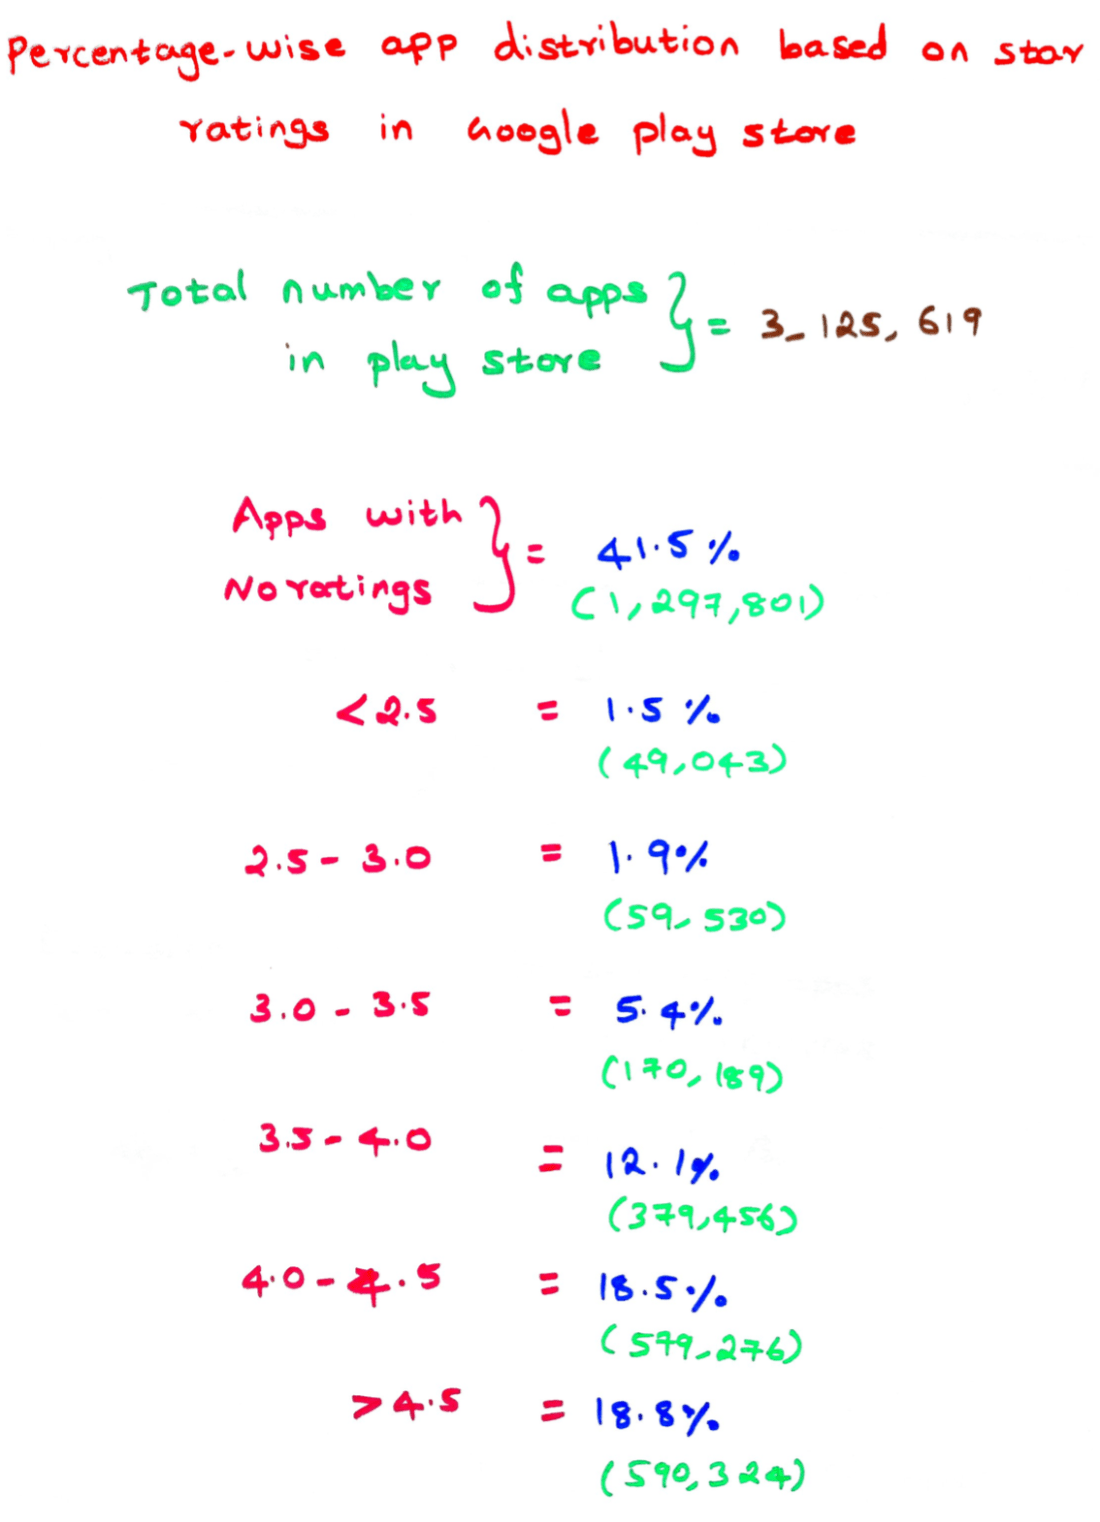 Percentage-wise app distribution based on star
ratings in Google play store
Total number of apps
in play store
} = 3,125,619
Apps with
No ratings
} = 41.5%
(1,297,801)
<2.5 = 1.5%
(49,043)
2.5 - 3.0 = 1.9%
(59,530)
3.0 - 3.5 = 5.4%
(170,189)
3.5 - 4.0 = 12.1%
(379,456)
4.0 - 4.5 = 18.5%
(579,276)
>4.5 = 18.8%
(590,324)